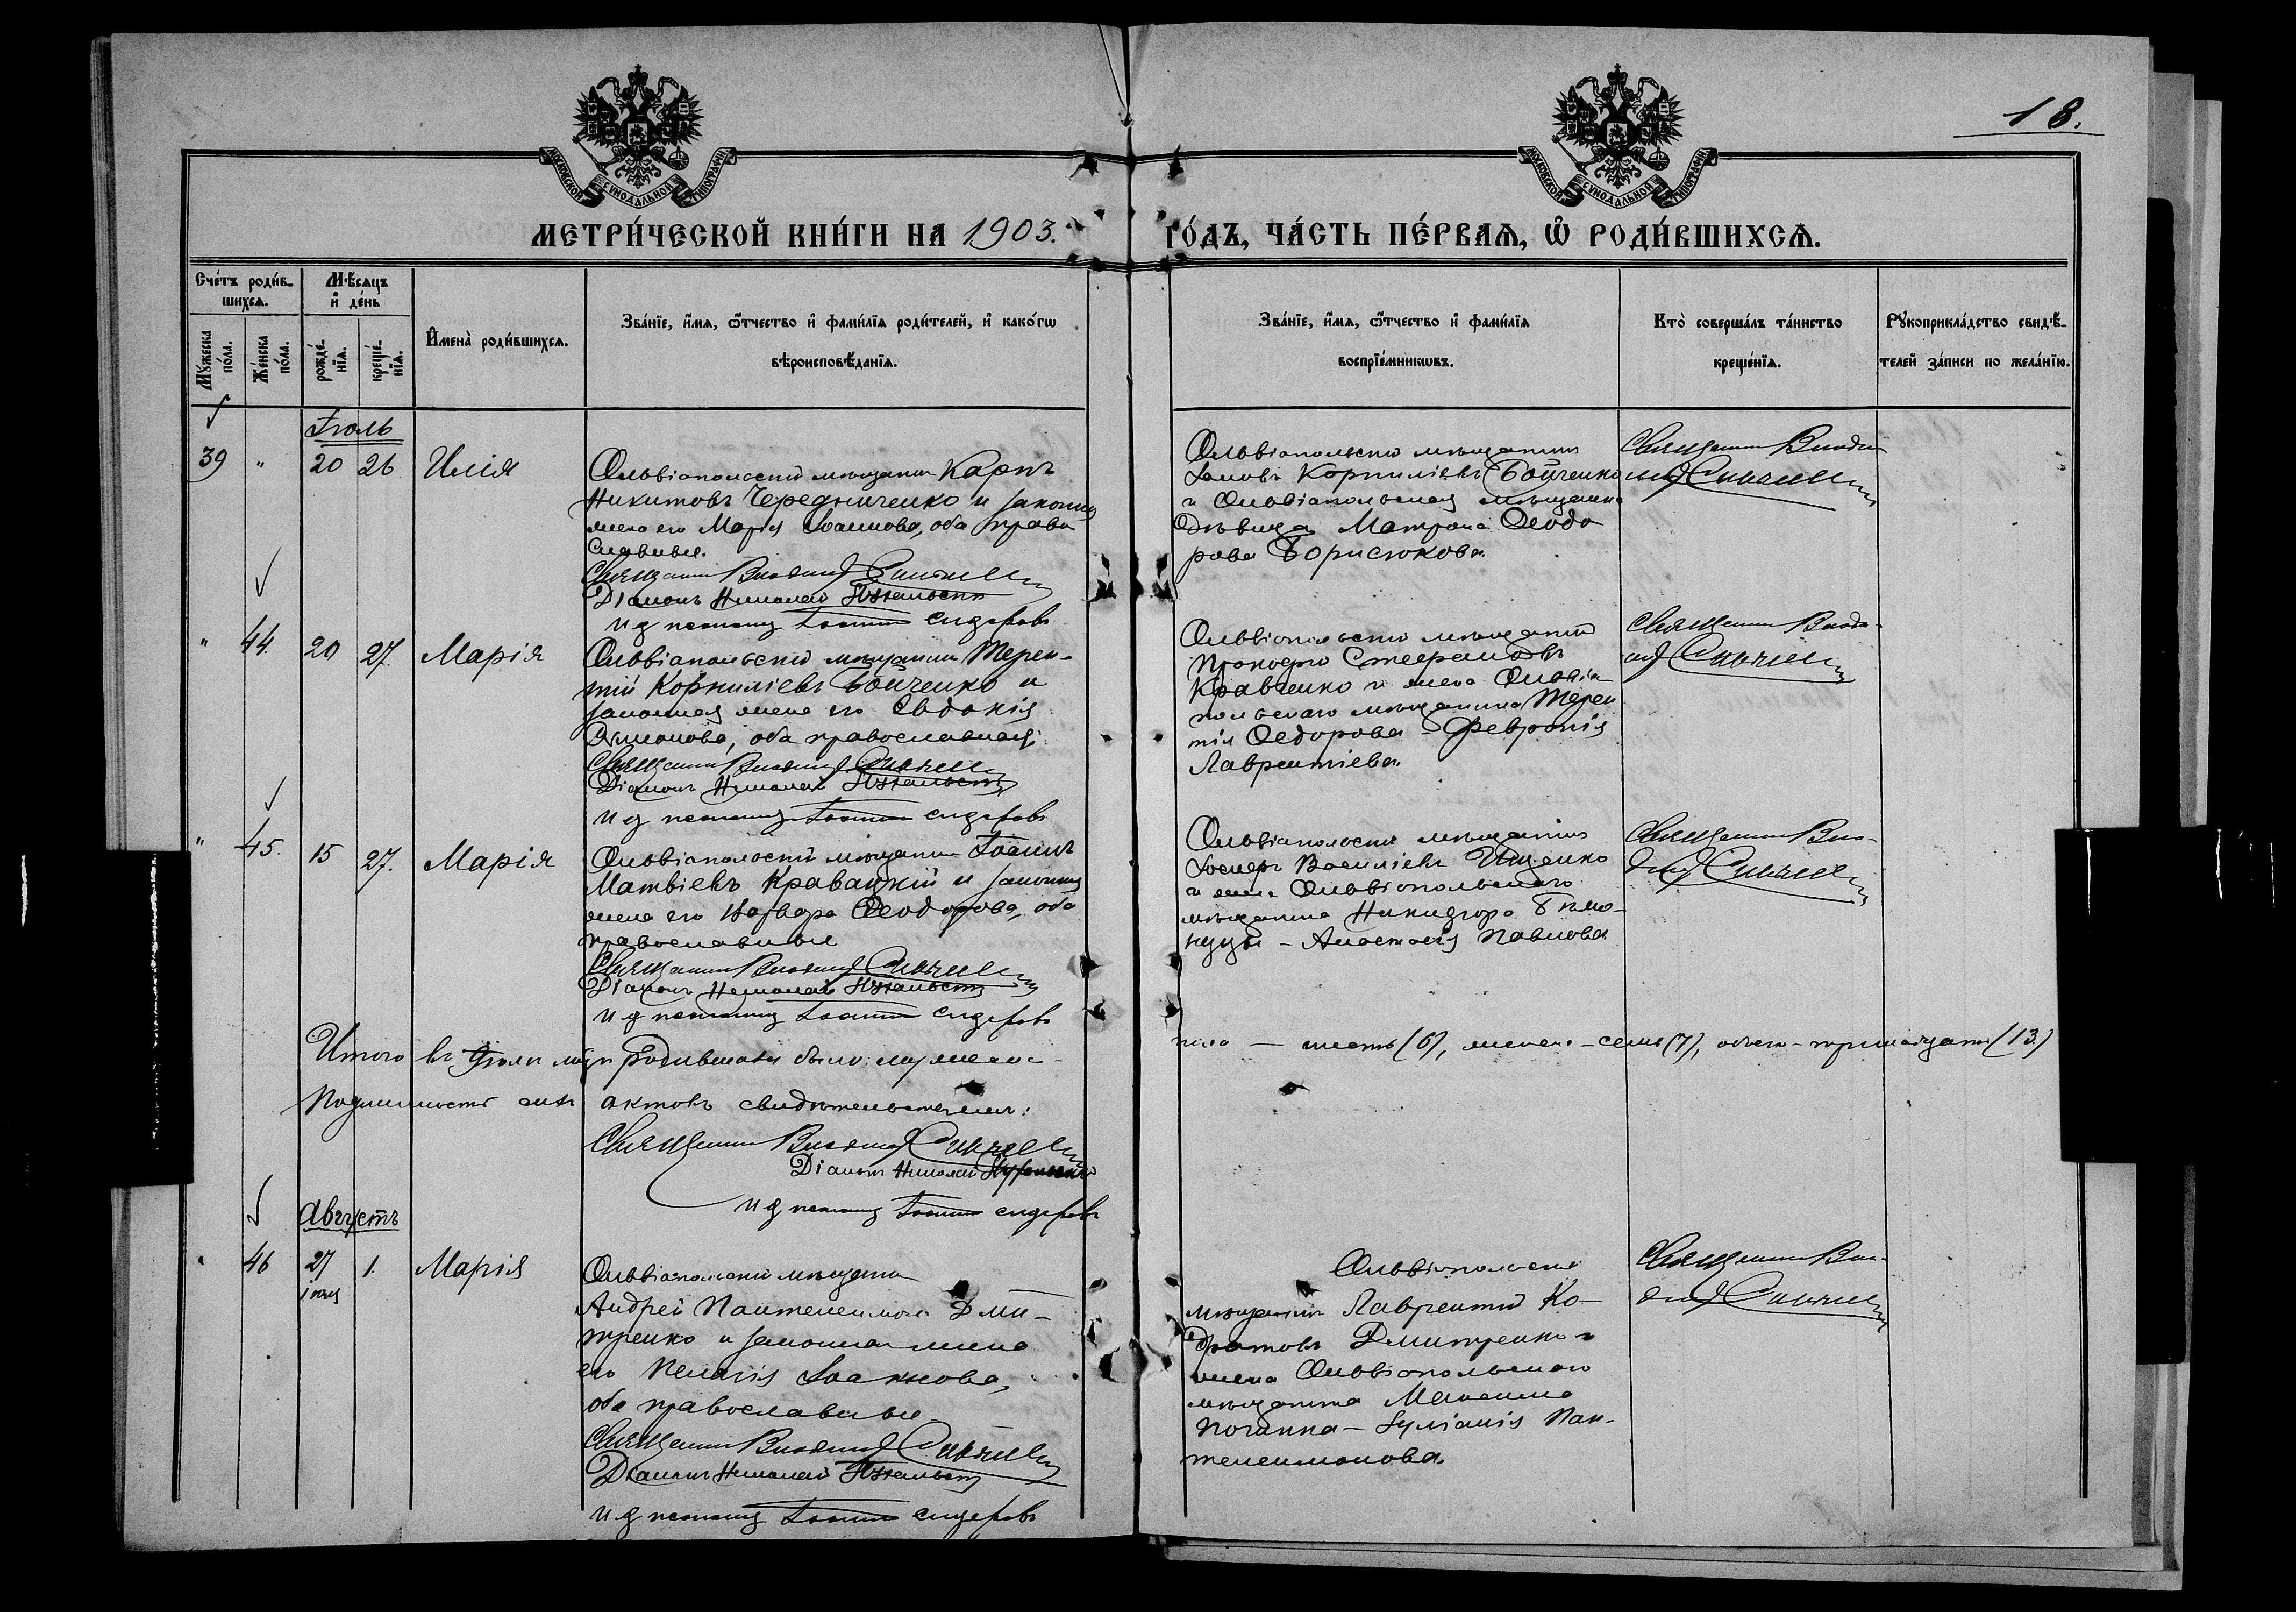 18.
МОСКОВСКОЙ СѴНОДАЛЬНОЙ ТИПОГРАФІИ
МОСКОВСКОЙ СѴНОДАЛЬНОЙ ТИПОГРАФІИ
МЕТРИ́ЧЕСКОЙ КНИ́ГИ НА 1903. ГО́ДЪ, ЧА́СТЬ ПЕ́РВАѦ, Ѡ҆ РОДИ́ВШИХСѦ.
Сче́тъ роди́в-
шихсѧ.
Мѣ́сѧцъ
и҆ де́нь
Мꙋ́жеска по́ла.
Же́нска по́ла.
рожде́-
нїѧ.
креще́-
нїѧ.
И҆мена̀ роди́вшихсѧ.
Зва́нїе, и҆́мѧ, ѻ҆́тчество и҆ фами́лїѧ роди́телей, и҆ како́гѡ
вѣроисповѣ́данїѧ.
Зва́нїе, и҆́мѧ, ѻ҆́тчество и҆ фами́лїѧ
воспрїе́мникѡвъ.
Кто̀ соверша́лъ та́инство
креще́нїѧ.
Рꙋкоприкла́дство свидѣ́-
телей за́писи по жела́нїю.
Іюль
39 " 20 26 Илія
Ольвіопольскій мѣщанинъ Карпъ
Никитовъ Чередниченко и законная
жена его Марія Іоаннова, оба право
славные.
Священникъ Владимір
Діаконъ Николай
И д псаломщ Іоаннъ Сидоровъ
Ольвіопольскій мѣщанинъ
Корниліевъ Бойченко
и Ольвіопольская мѣщанка
дѣвица Матрона Ѳеодо
рова Борисюкова.
Священникъ Влади
мір
" 44. 20 27. Марія
Ольвіопольскій мѣщанинъ Терен-
тій Корниліевъ Бойченко и
законная жена его Евдокія
оба православные.
Священникъ Владимір
Діаконъ Николай
И д псаломщ Іоаннъ Сидоровъ
Ольвіопольскій мѣщанинъ
Прокофій Стефановъ
Кравченко и жена Ольвіо-
польскаго мѣщанина Терен
тія Ѳедорова – Февронія
Лаврентіева.
Священникъ Влади-
мір
" 45. 15 27. Марія
Ольвіопольскій мѣщанинъ Іоаннъ
Матвіевъ Кравацкій и законная
жена его Варвара Ѳеодорова, оба
православные
Священникъ Владимір
Діаконъ Николай
И д псаломщ Іоаннъ Сидоровъ
Ольвіопольскій мѣщанинъ
Іосифъ Василіевъ Ищенко
и жена Ольвіопольскаго
мѣщанина Никифора
– Анастасія Павлова
Священникъ Вла-
димір
Итого въ Іюлѣ м-цѣ родившихся было: мужеска-
пола – шесть (6), женска – семь (7), обоего – тринадцать (13)
Подлинность сихъ актовъ свидѣтельствуемъ:
Священникъ Владимір
Діаконъ Николай
И д псаломщ Іоаннъ Сидоровъ
Августъ
" 46 27 1. Марія
іюля
Ольвіопольскій мѣщанинъ
Андрей Пантелеимоновъ Дми-
тренко и законная жена
его Пелагія Іоаннова,
оба православные
Священникъ Владимір
Діаконъ Николай
И д псаломщ Іоаннъ Сидоровъ
Ольвіопольскій
мѣщанинъ Лаврентій Ко-
дратовъ Дмитренко и
жена Ольвіопольскаго
мѣщанина Максима
– Іуліанія Пан-
телеимонова.
Священникъ Вла-
димір